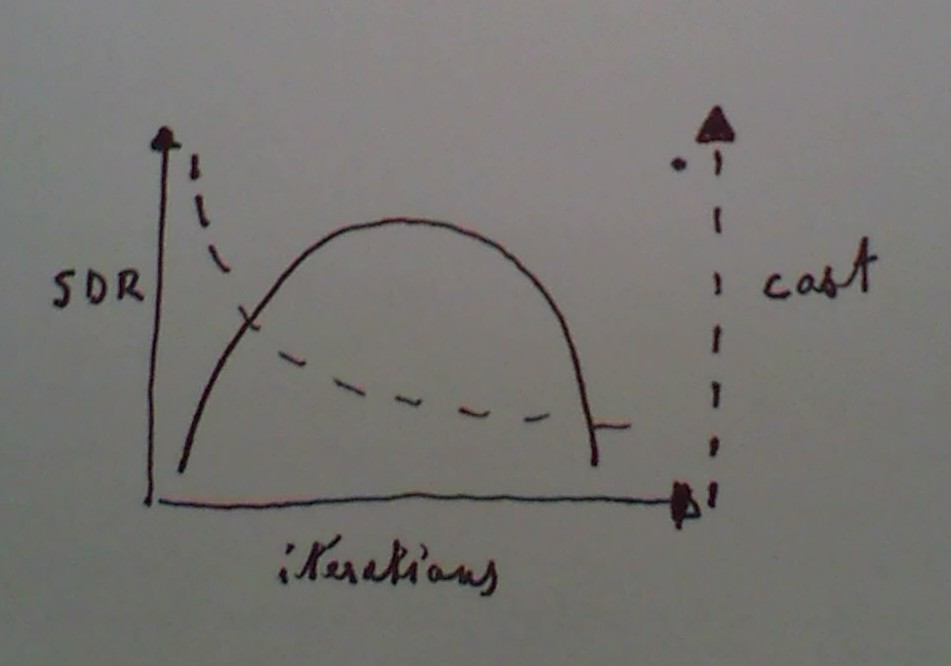 SDR
cost
iterations